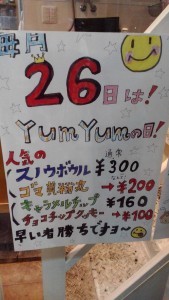 毎月
26日は!
YumYumの日!
人気の 通常
スノウボウル ¥300
なんと!
ゴマ →¥200
キャラメルチップ ¥160
チョコチップクッキー →¥100
早い者勝ちですョ〜